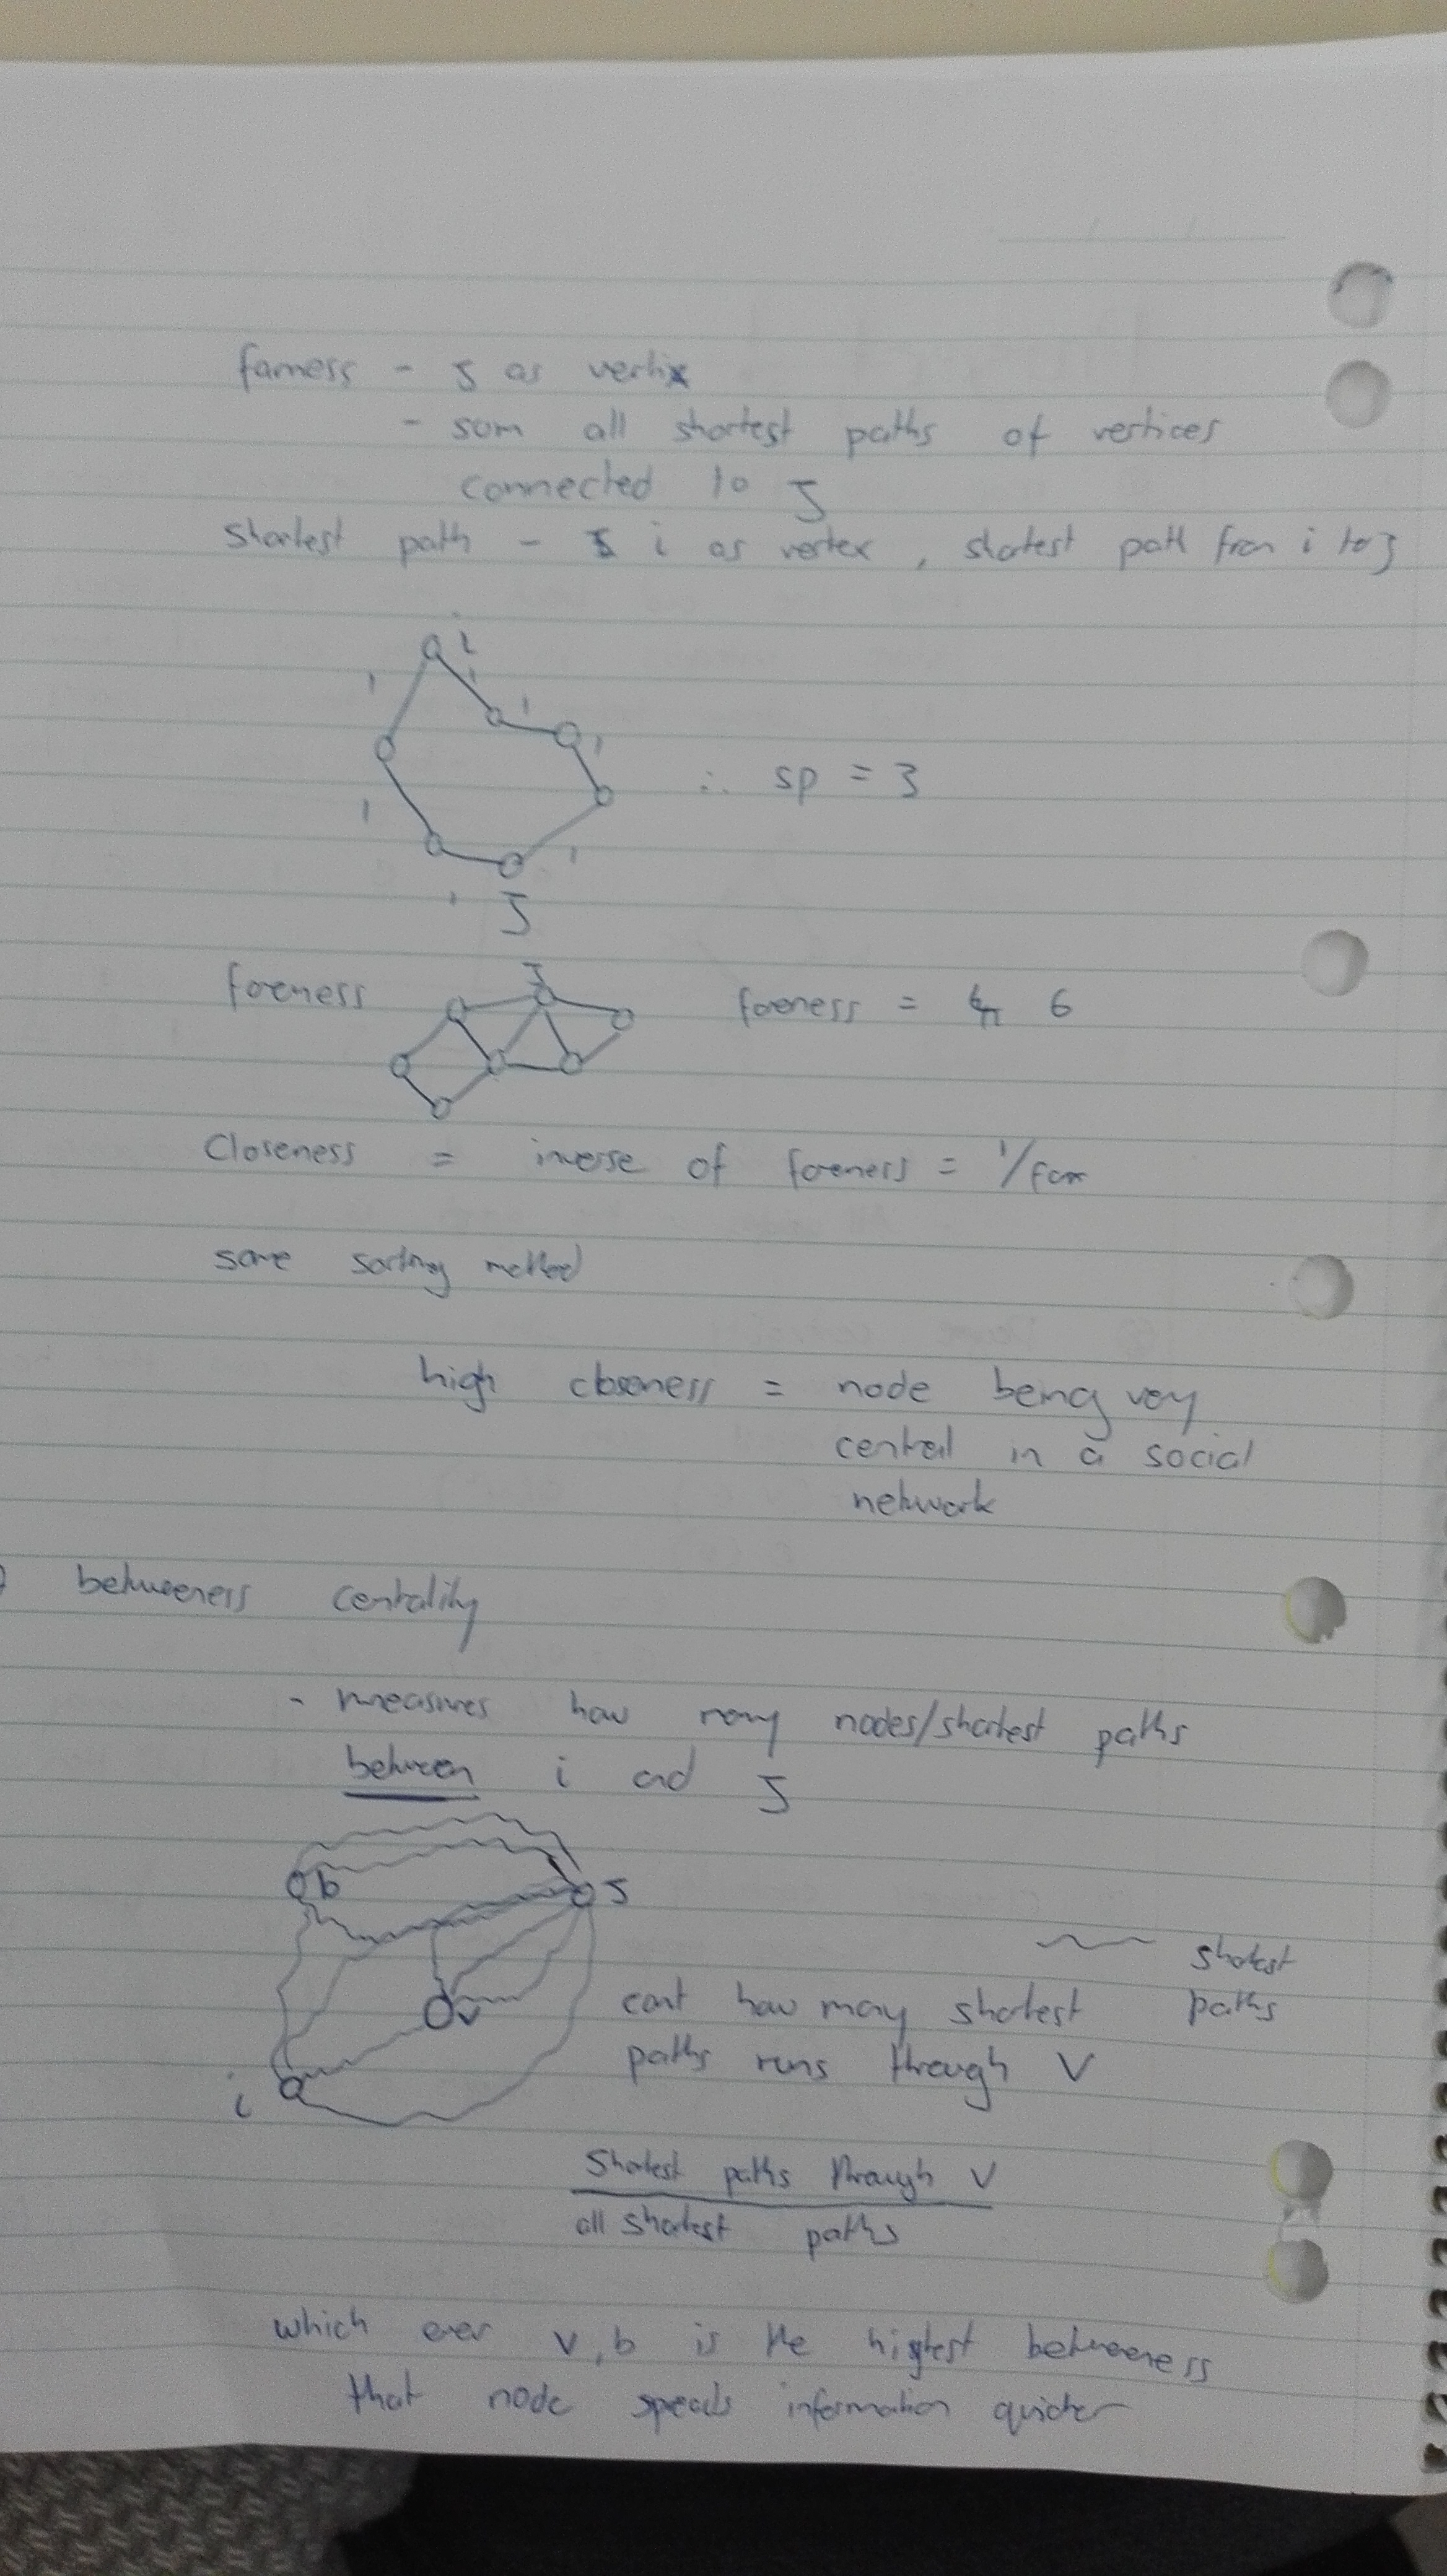 farness - J as vertix
- sum all shortest paths of vertices
connected to J
Shortest path - i as vertex, shortest path from i to J
i
1
1
1
1
1
1
1
∴ sp = 3
J
fareness
J
fareness = 6
Closeness = inverse of fareness = 1/far
same sorting method
high closeness = node being very
central in a social
network
betweeness centrality
- measures how many nodes/shortest paths
between i and J
b
J
shortest
paths
v
cont how many shortest
paths runs through V
i
Shortest paths through V
all shortest paths
which ever v, b is the highest betweeness
that node speads information quicker